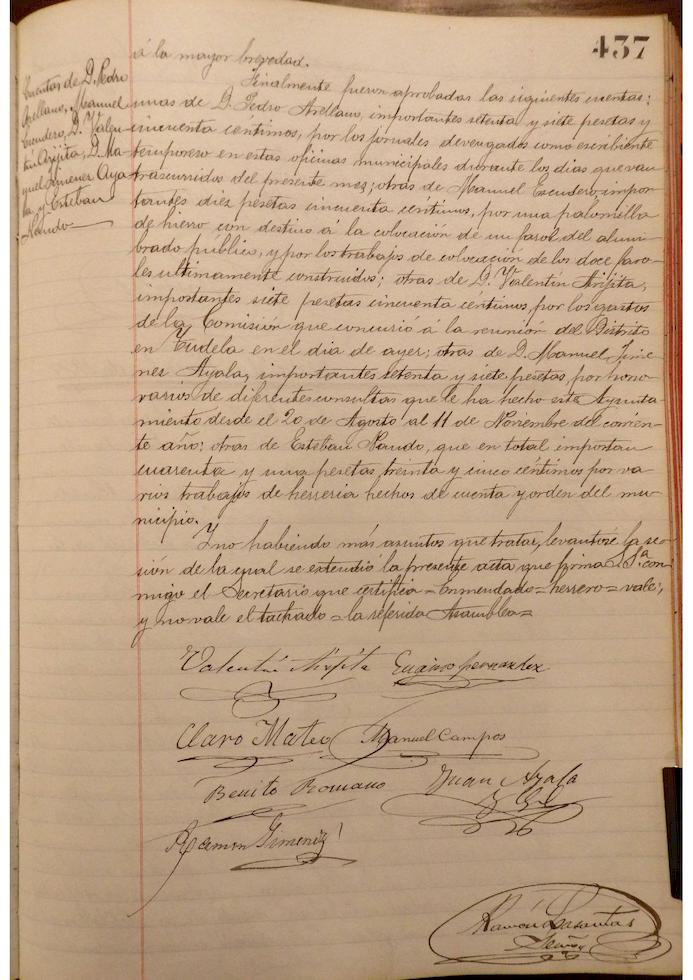 437
á la mayor brevedad.
Cuentas de D. Pedro
Arellano, Manuel
Escudero, D. Valen-
tín Arpita, D. Ma-
nuel Jimenez Aya-
la y Esteban
Pando
Finalmente fueron aprobadas las siguientes cuentas:
unas de D. Pedro Arellano, importantes setenta y siete pesetas y
cincuenta centimos, por los jornales devengados como escribiente
temporero en estas oficinas municipales durante los dias que van
trascurridos del presente mes; otras de Manuel Escudero, impor-
tantes diez pesetas cincuenta céntimos, por una palomilla
de hierro con destino a la colocación de un farol del alum-
brado público, y por los trabajos de colocación de los doce faro-
les ultimamente construidos; otras de D. Valentín Arpita,
importantes siete pesetas cincuenta centimos, por los gastos
de la Comisión que concurrió á la reunión del Distrito
en Tudela en el dia de ayer; otras de D. Manuel Jime-
nez Ayala, importantes setenta y siete pesetas, por hono-
rarios de diferentes consultas que le ha hecho este Ayunta-
miento desde el 20 de Agosto al 11 de Noviembre del corrien-
te año; otras de Esteban Pando, que en total importan
cuarenta y una pesetas, treinta y cinco céntimos por va-
rios trabajos de herreria hechos de cuenta y orden del mu-
nicipio.
Y no habiendo más asuntos que tratar, levantóse la se-
sión de la cual se extendió la presente acta que firma S. Sª. con-
migo el Secretario que certifica = Enmendado = herrero = vale;
y no vale el tachado = la referida Asamblea =
Valentín Arpita
Claro Mateo Manuel Campos
Benito Romano Juan Ayala
Ramon Gimenez
Ramón Lasantas